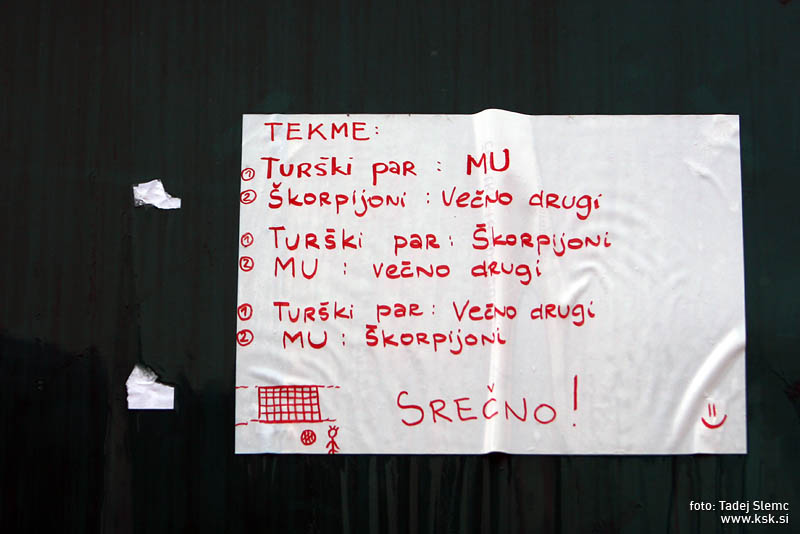 TEKME:
① Turški par : MU
② Škorpijoni : Večno drugi
① Turški par : Škorpijoni
② MU : večno drugi
① Turški par : Večno drugi
② MU : Škorpijoni
SREČNO!
foto: Tadej Slemc
www.ksk.si